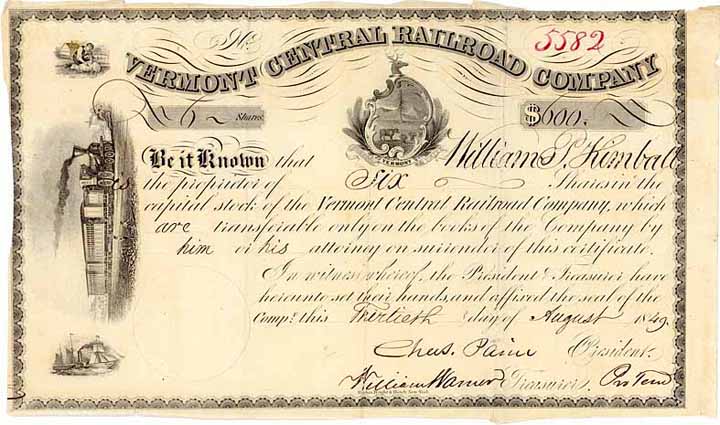 No. 5582
VERMONT CENTRAL RAILROAD COMPANY
6 Shares. $600.
VERMONT
Be it Known that William P. Kimball
is the proprietor of Six Shares in the
capital stock of the Vermont Central Railroad Company, which
are transferable only on the books of the Company by
him or his attorney on surrender of this certificate.
In witness whereof, the President & Treasurer have
hereunto set their hands, and affixed the seal of the
Compy. this Thirtieth day of August 1849.
Chas. Paine President.
William Warner Treasurer. Pro Tem
New York